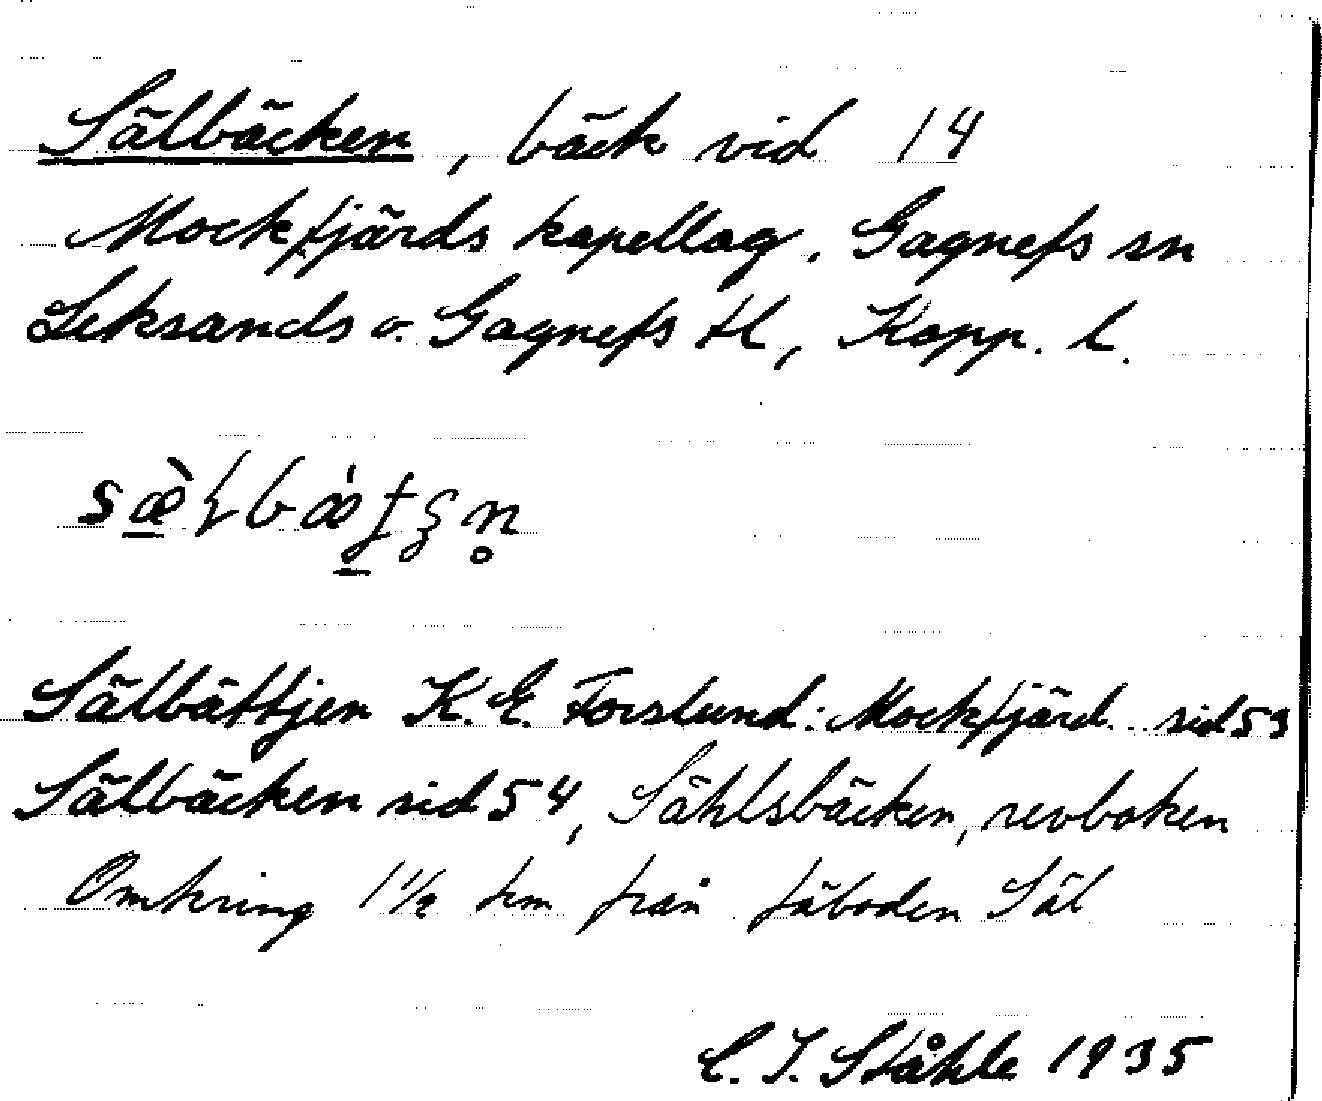 Sälbäcken, bäck vid 14
Mockfjärds kapellag. Gagnefs sn
Leksands o. Gagnefs tl, Kopp. l.
Sälbättjen K. E. Forslund: Mockfjärd sid 53
Sälbäcken sid 54, Sählsbäcken, revboken
Omkring 1 1/2 km från fäboden Säl
C. I. Ståhle 1935